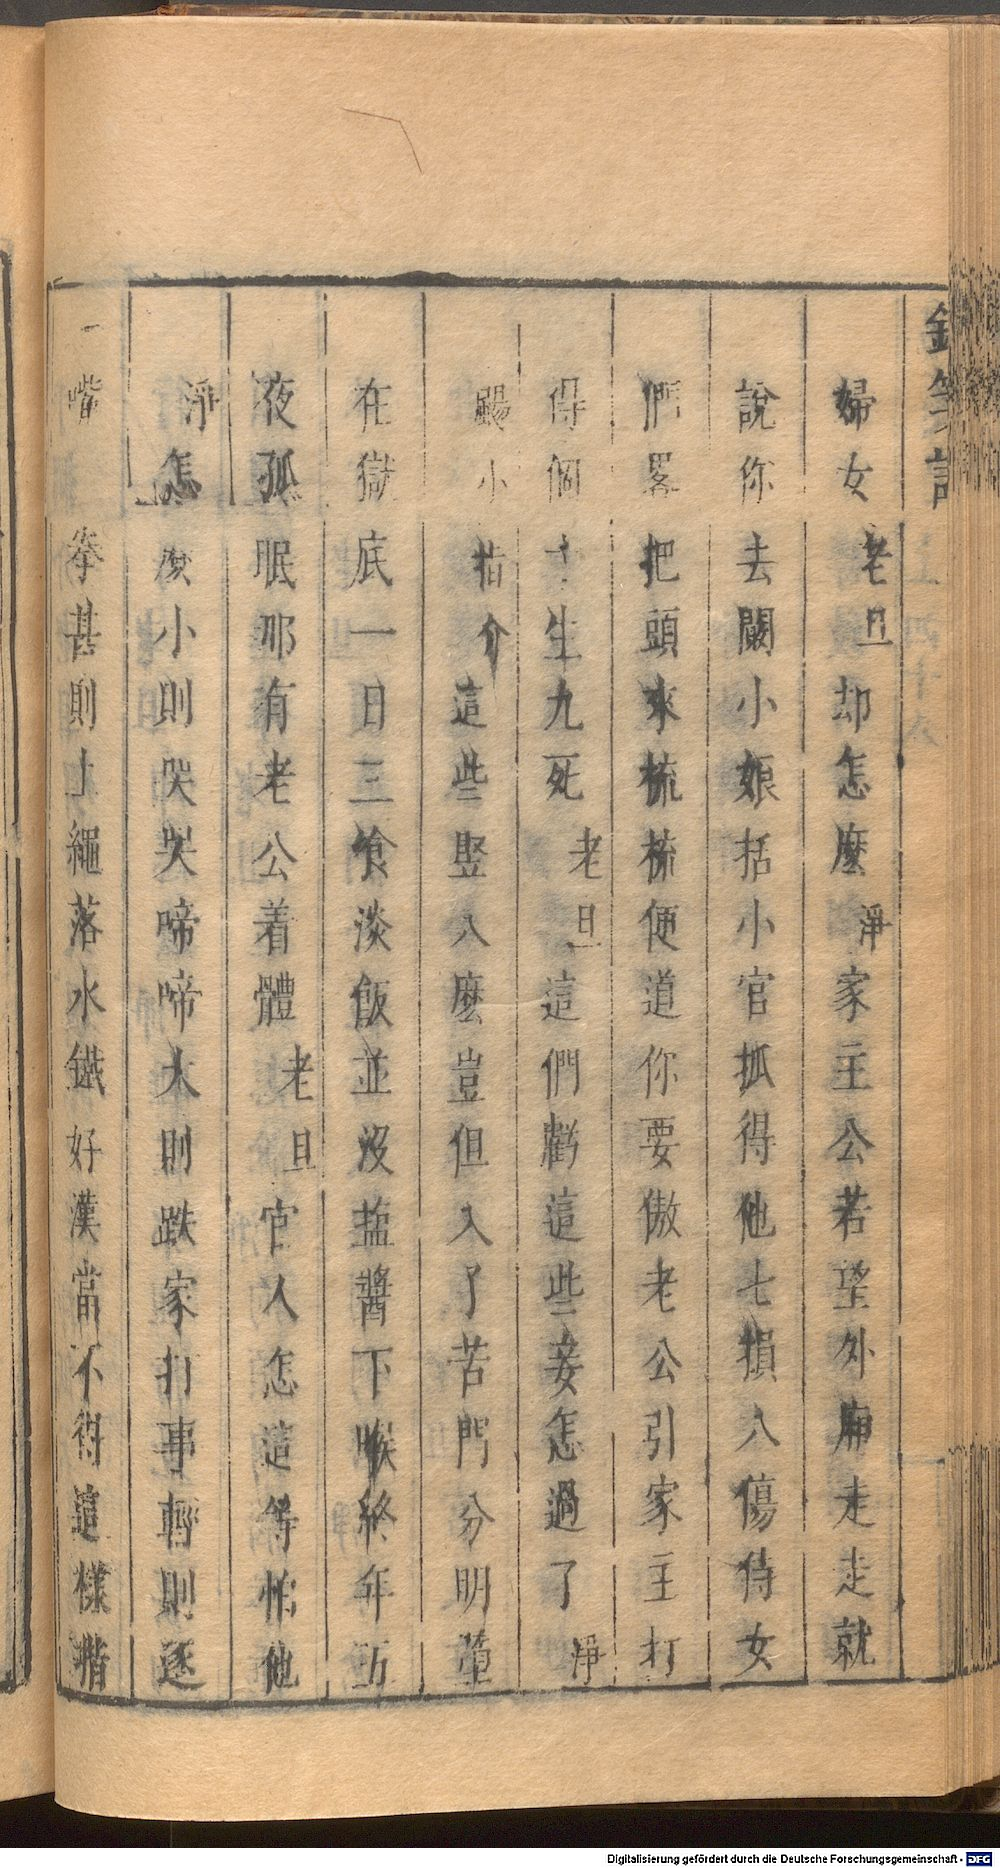 釵釧記
婦女老旦却怎麽淨家主公若望外廂走走就
說你去闞小娘括小官抓得他七損八傷侍女
們畧把頭來梳梳便道你要傲老公引家主打
得個十生九死老旦這們虧這些妾怎過了淨
小指介這些竪八麽豈但入了苦門分明墮
在獄底一日三飡淡飯並沒盐醬下喉終年五
夜孤眠那有老公着體老旦官人怎這等怕他
淨怎麽小則哭哭啼啼大則跌家打事輕則逐
嘴拳甚則上繩落水鐵好漢當不得這樣
Digitalisierung gefördert durch die Deutsche Forschungsgemeinschaft - DFG